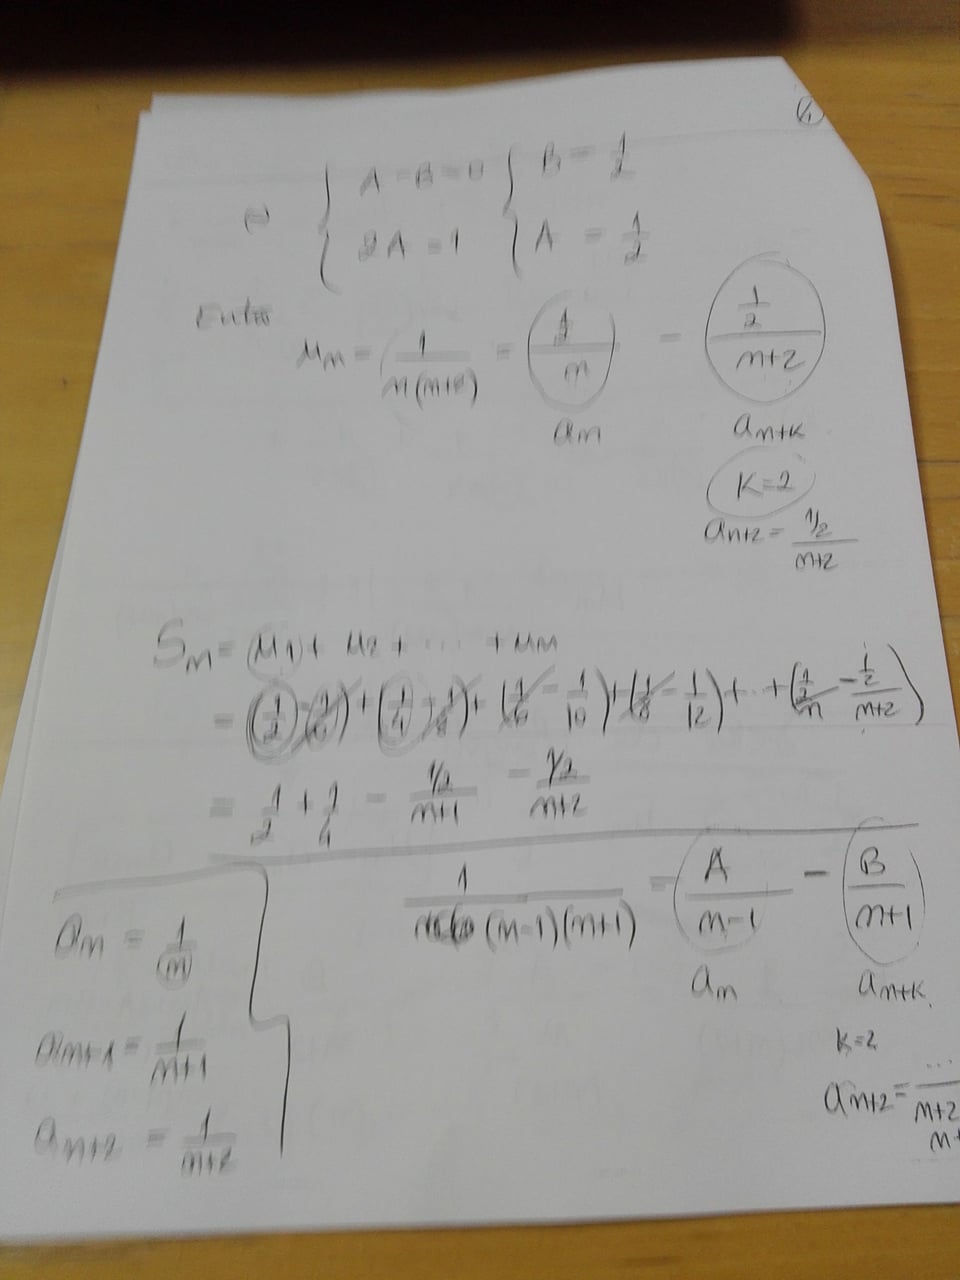 A - B = 0 B = 1/2
(=)
2A = 1 A = 1/2
Então
u_n = 1/(n(n+2)) = (1/2)/n - (1/2)/(n+2)
a_n a_n+k
k=2
a_n+2 = (1/2)/(n+2)
S_n = (u_1) + u_2 + ... + u_n
= (1/2 - 1/6) + (1/4 - 1/8) + (1/6 - 1/10) + (1/8 - 1/12) + ... + ((1/2)/n - (1/2)/(n+2))
= 1/2 + 1/4 - (1/2)/(n+1) - (1/2)/(n+2)
1/((n-1)(n+1)) = A/(n-1) - B/(n+1)
a_n a_n+k
k=2
a_n+2 = .../n+2
a_n = 1/n
a_n+1 = 1/(n+1)
a_n+2 = 1/(n+2)